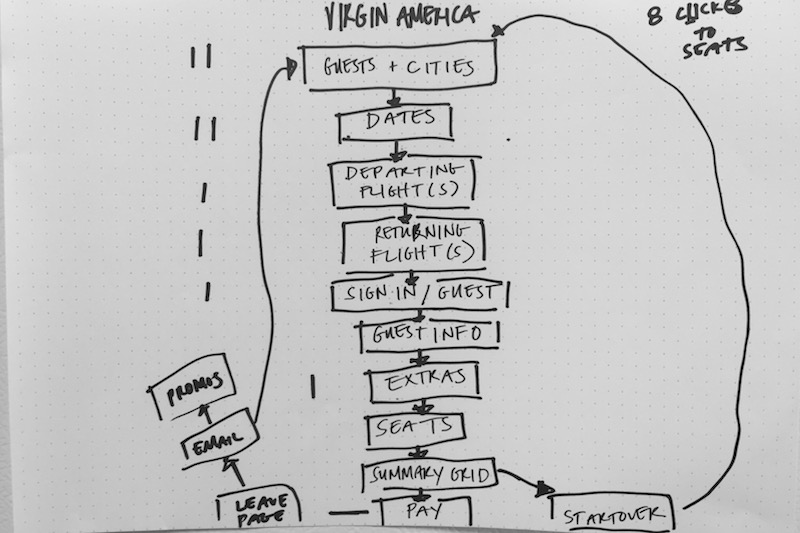 VIRGIN AMERICA
8 CLICKS
TO
SEATS
GUESTS + CITIES
DATES
DEPARTING
FLIGHT(S)
RETURNING
FLIGHT(S)
SIGN IN / GUEST
GUEST INFO
EXTRAS
SEATS
SUMMARY GRID
PAY
STARTOVER
LEAVE
PAGE
EMAIL
PROMOS